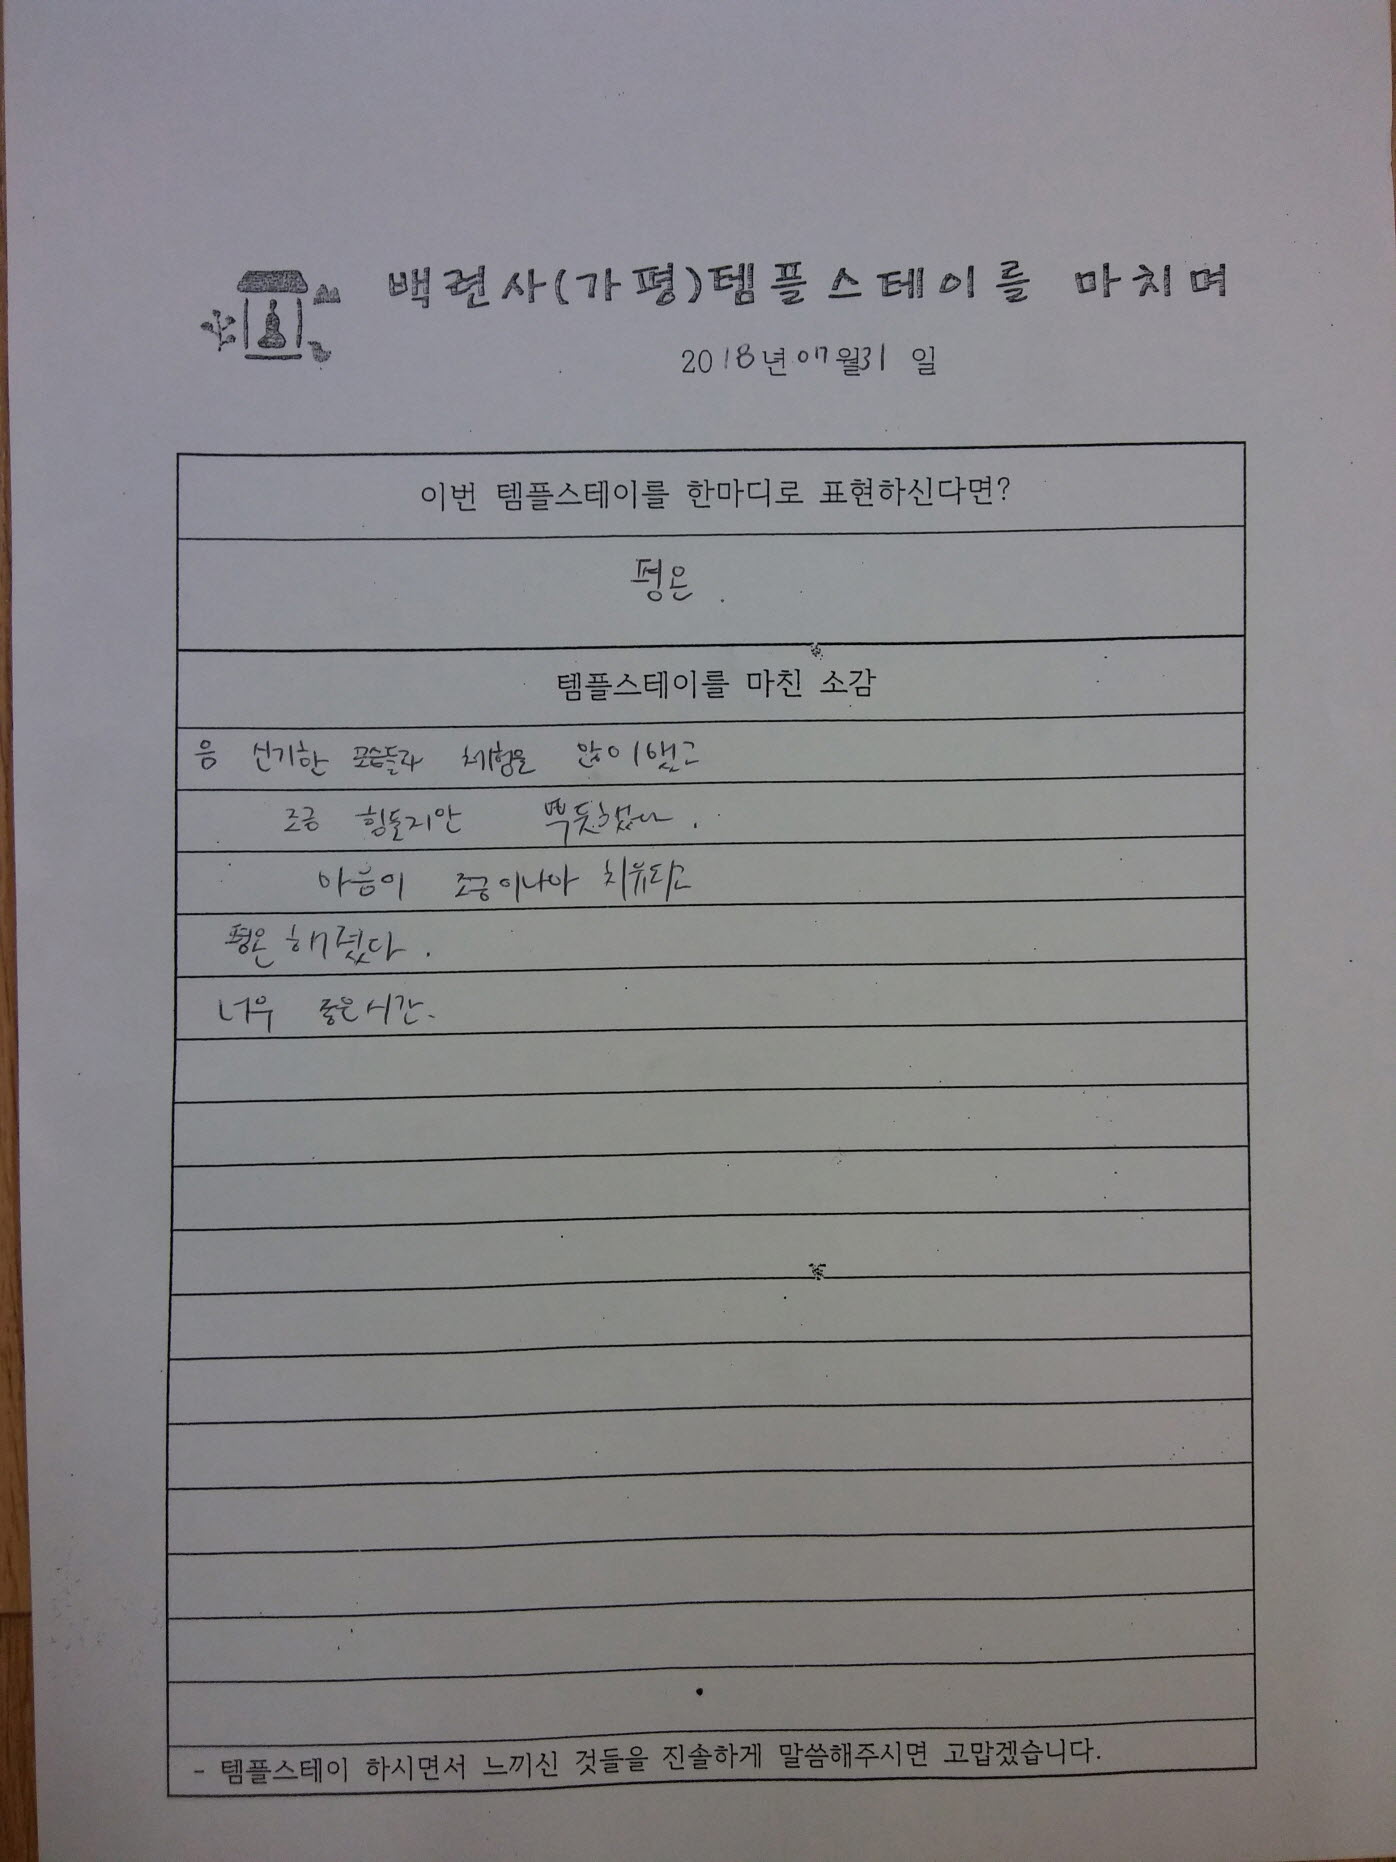 백련사(가평)템플스테이를 마치며
2018년 07월31 일
이번 템플스테이를 한마디로 표현하신다면?
평온.
템플스테이를 마친 소감
음 신기한 모습들과 체험을 많이했고
조금 힘들지만 뿌듯했다.
마음이 조금이나마 치유되고
평온해졌다.
너무 좋은시간.
- 템플스테이 하시면서 느끼신 것들을 진솔하게 말씀해주시면 고맙겠습니다.